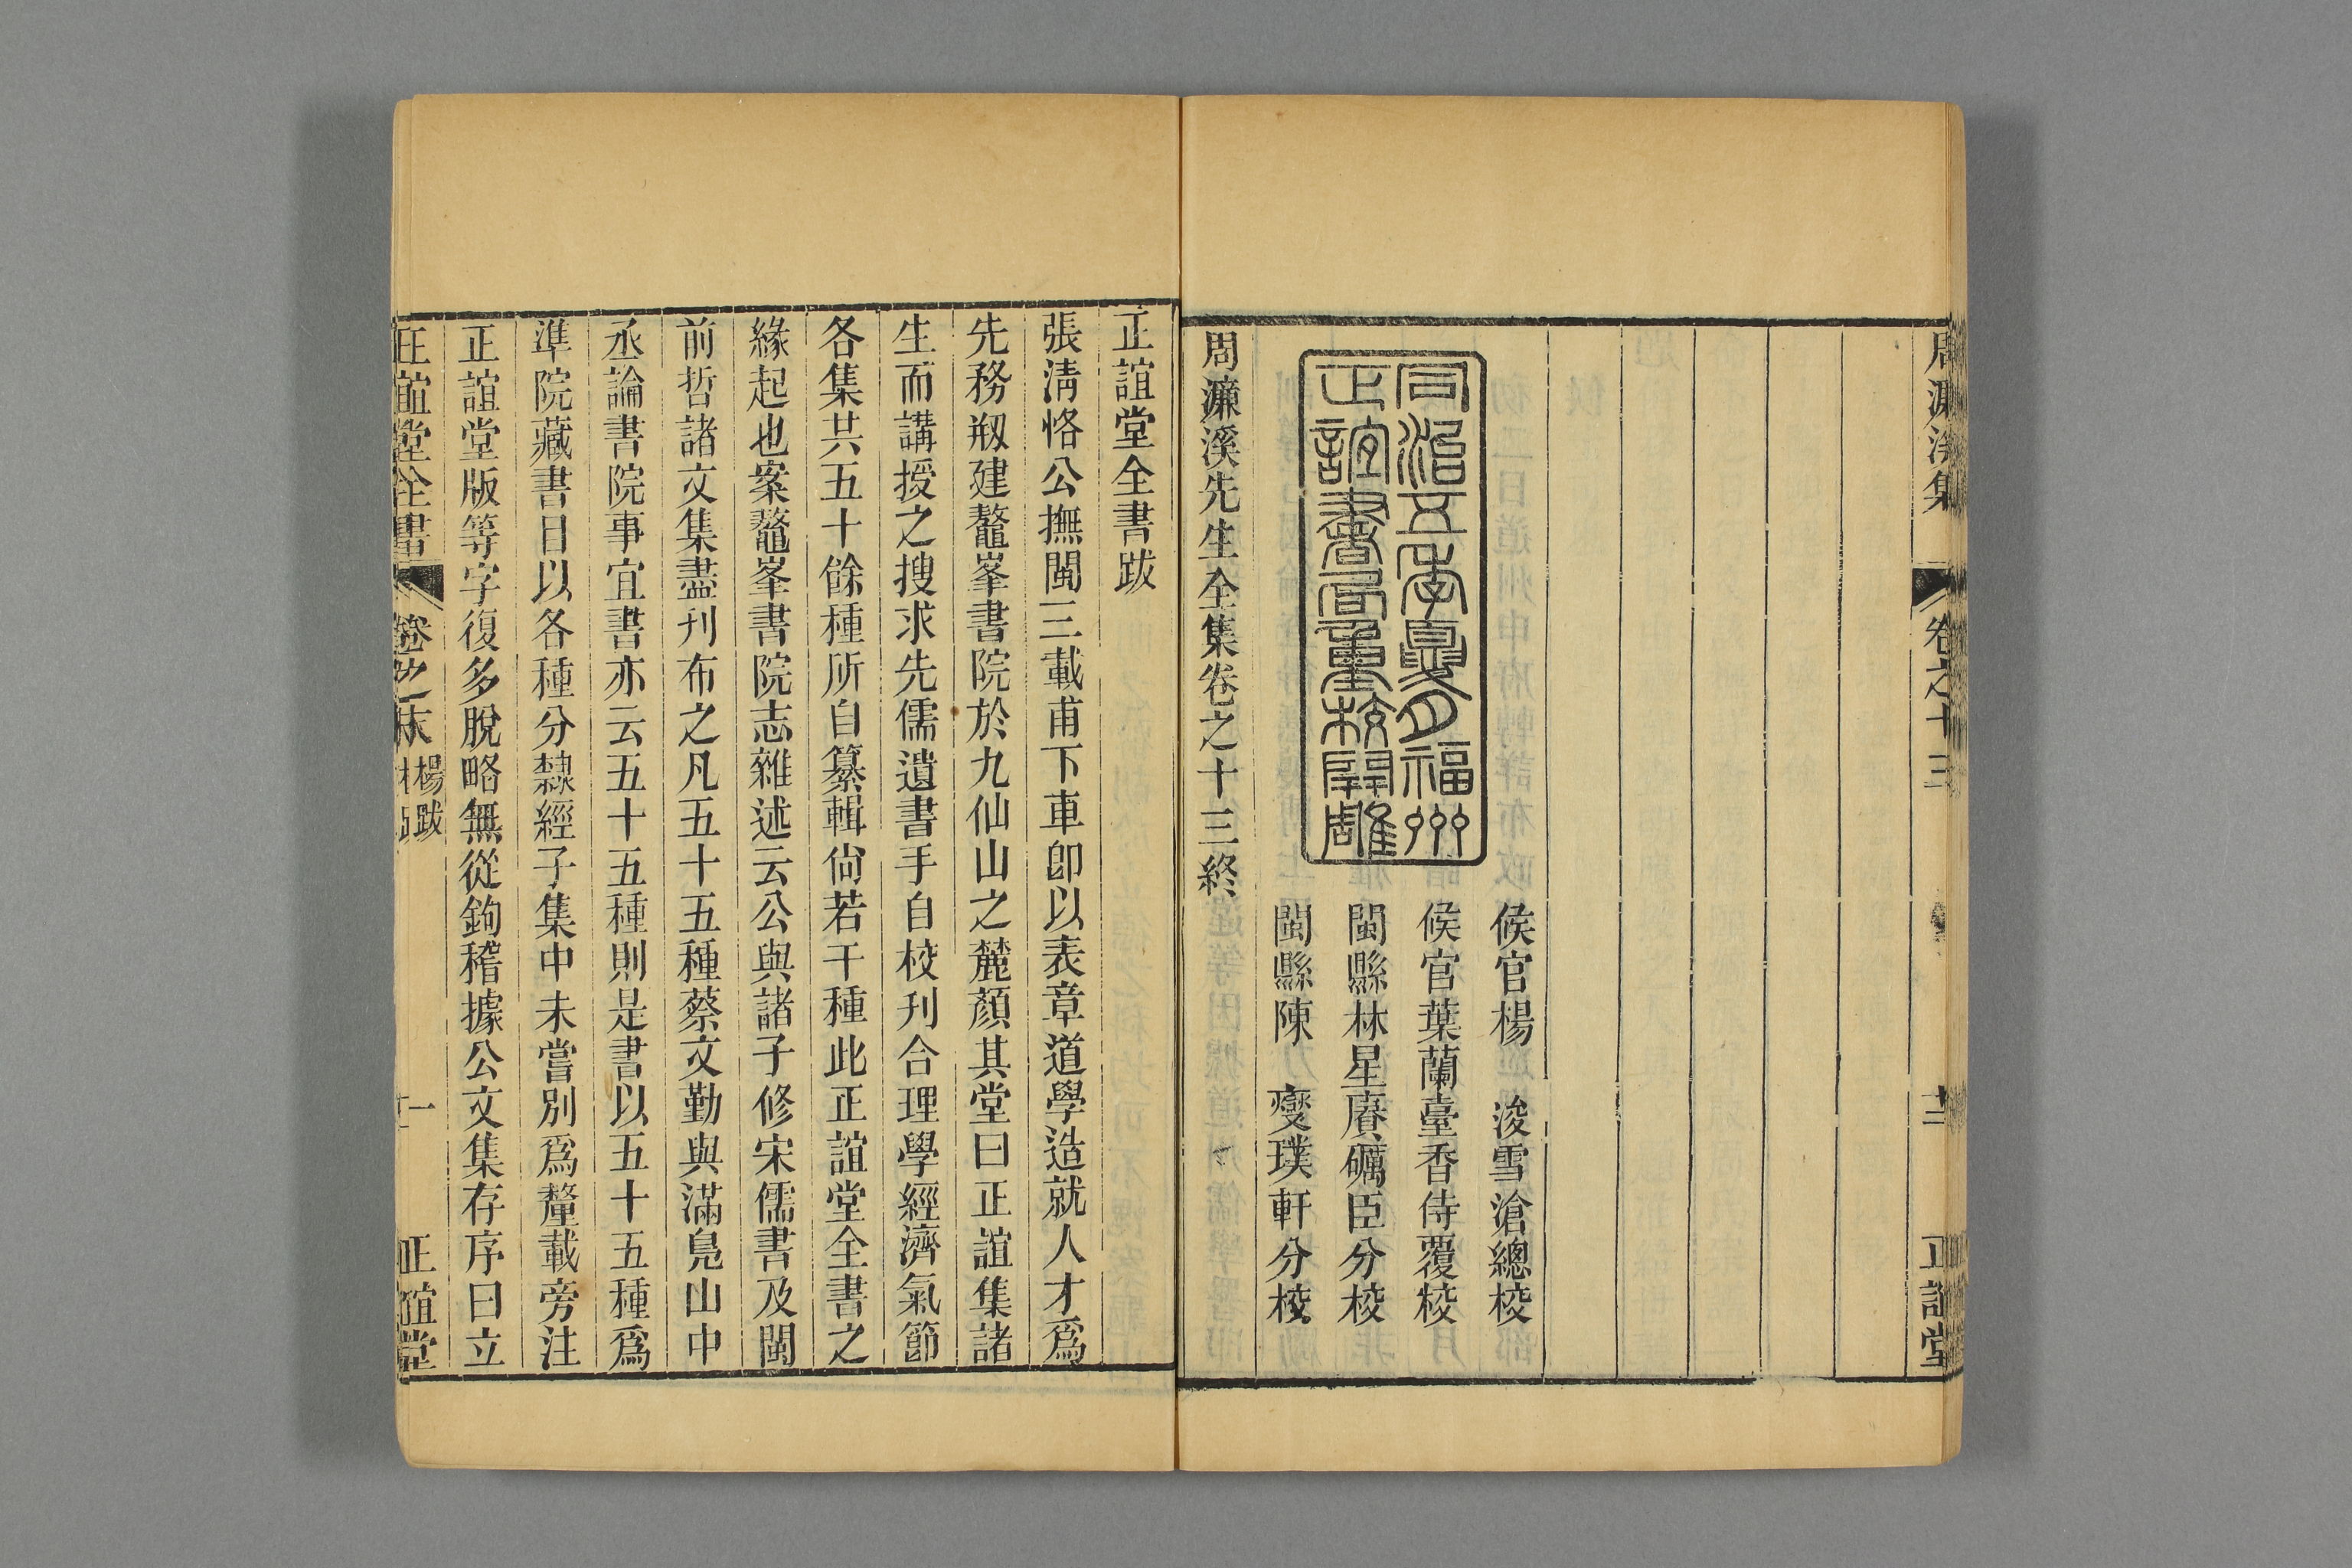 周濂溪集 卷之十三 十二 正誼堂
候官楊 浚雪滄總校
候官葉蘭臺香侍覆校
閩縣林星賡礪臣分校
閩縣陳 燮璞軒分校
同治五年夏月福州
正誼書局重校開雕
周濂溪先生全集卷之十三終
正誼堂全書跋
張清恪公撫閩三載甫下車卽以表章道學造就人才爲
先務剏建鼇峯書院於九仙山之麓顏其堂曰正誼集諸
生而講授之搜求先儒遺書手自校刊合理學經濟氣節
各集共五十餘種所自纂輯尙若干種此正誼堂全書之
緣起也案鼇峯書院志雜述云公與諸子修宋儒書及閩
前哲諸文集盡刊布之凡五十五種蔡文勤與滿鳧山中
丞論書院事宜書亦云五十五種則是書以五十五種爲
準院藏書目以各種分隸經子集中未嘗別爲釐載旁注
正誼堂版等字復多脫略無從鉤稽據公文集存序曰立
正誼堂全書 卷之末 楊跋 一 正誼堂